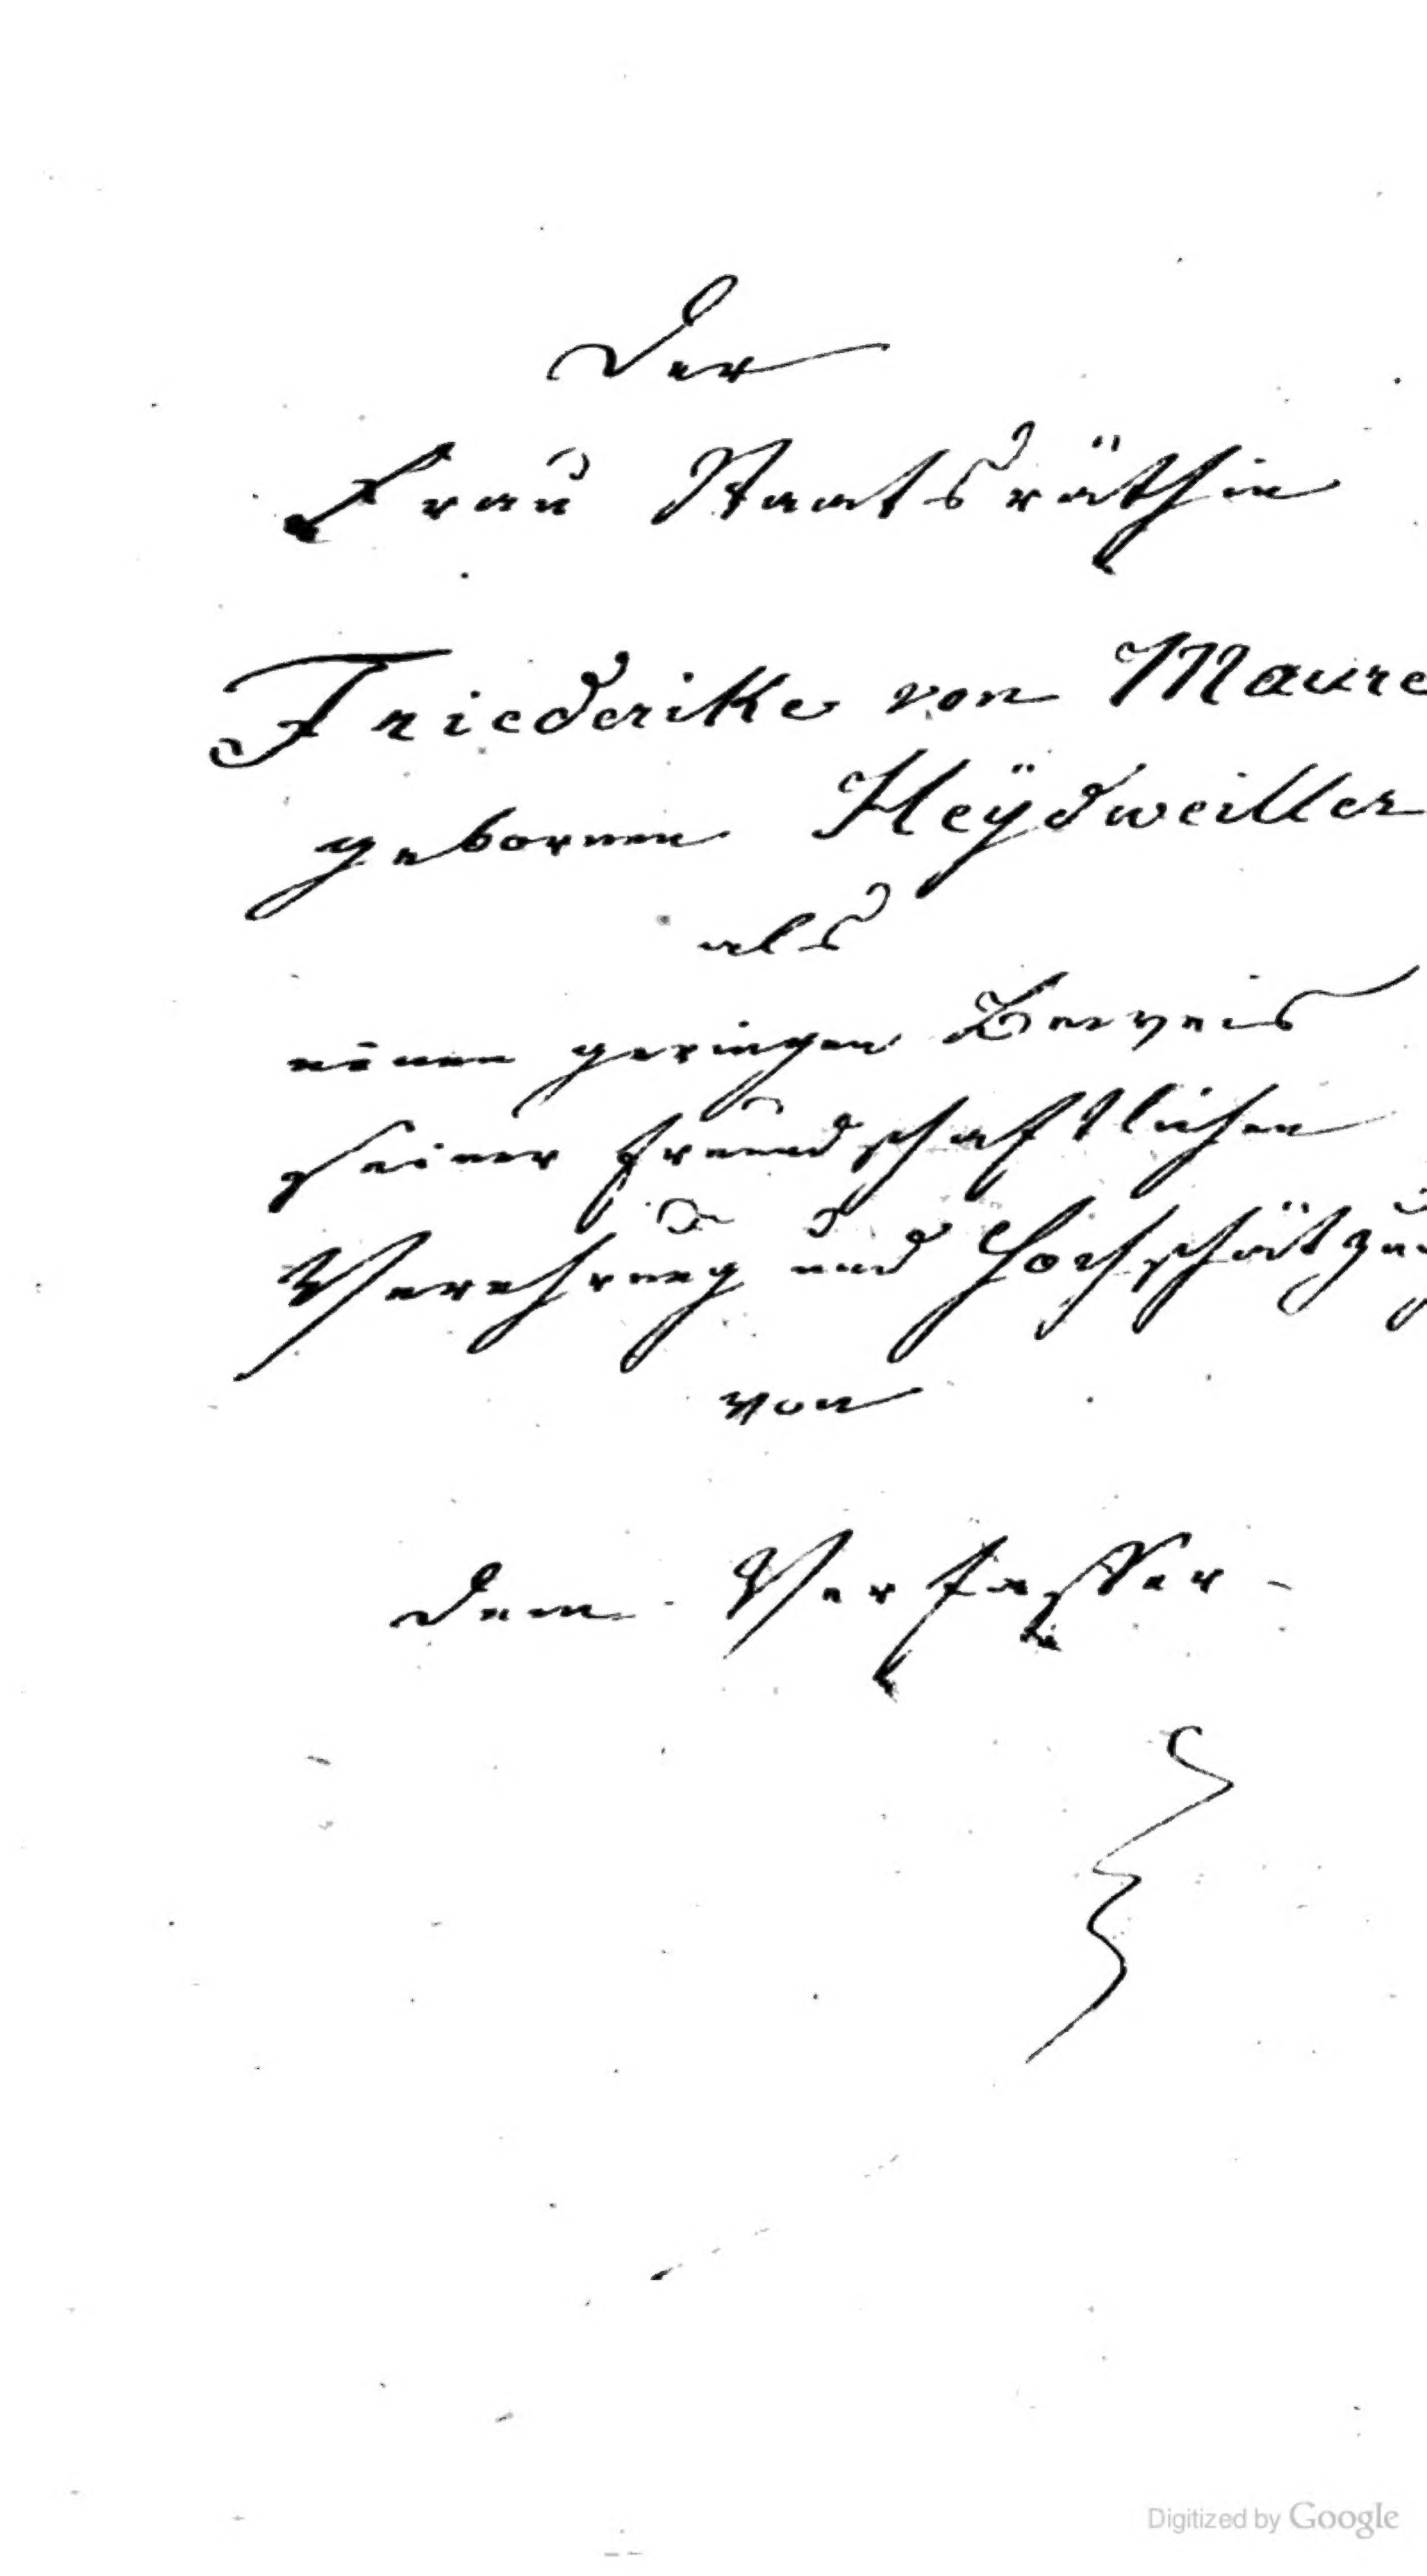 Der
Frau Staatsräthin
Friederike von Maure
gebornen Heÿdweiller
als
einen geringen Beweis
seiner freundschaftlichen
Verehrung und Hochschätzung
von
dem Verfasser
Digitized by Google